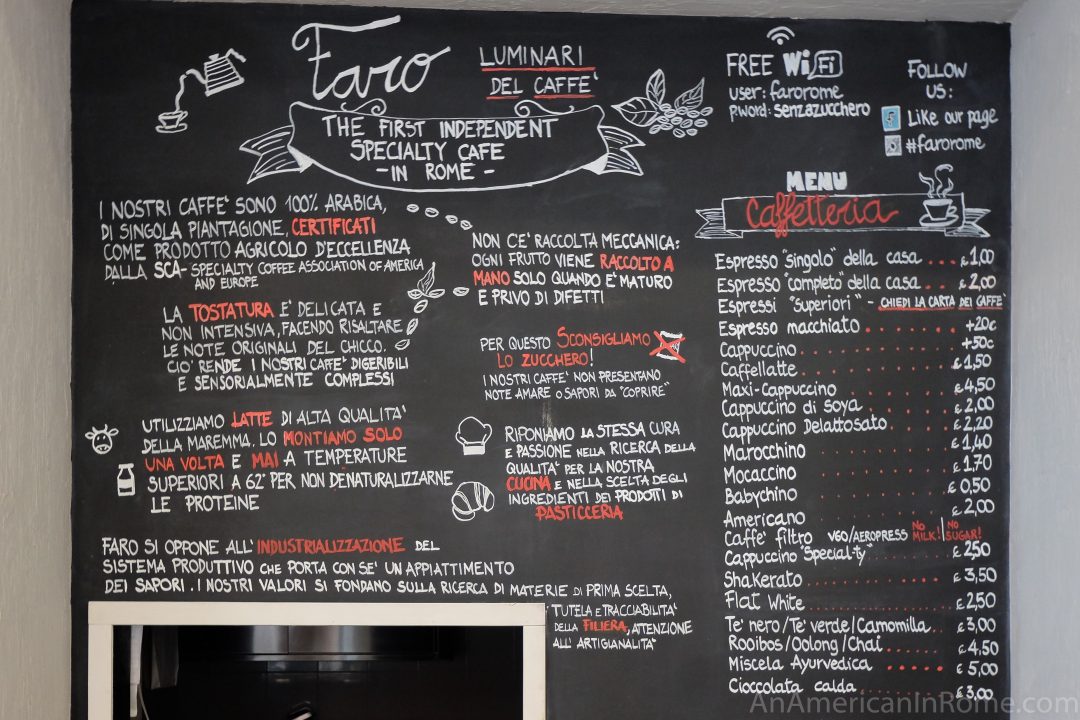 Faro
LUMINARI
DEL CAFFE'
THE FIRST INDEPENDENT
SPECIALTY CAFE
- IN ROME -
FREE WiFi
user: farorome
p.word: senzazucchero
FOLLOW
US:
Like our page
#farorome
I NOSTRI CAFFE' SONO 100% ARABICA,
DI SINGOLA PIANTAGIONE, CERTIFICATI
COME PRODOTTO AGRICOLO D'ECCELLENZA
DALLA SCA- SPECIALTY COFFEE ASSOCIATION OF AMERICA
AND EUROPE
LA TOSTATURA E' DELICATA E
NON INTENSIVA, FACENDO RISALTARE
LE NOTE ORIGINALI DEL CHICCO.
CIO' RENDE I NOSTRI CAFFE' DIGERIBILI
E SENSORIALMENTE COMPLESSI
UTILIZZIAMO LATTE DI ALTA QUALITA'
DELLA MAREMMA. LO MONTIAMO SOLO
UNA VOLTA E MAI A TEMPERATURE
SUPERIORI A 62° PER NON DENATURALIZZARNE
LE PROTEINE
NON CE' RACCOLTA MECCANICA:
OGNI FRUTTO VIENE RACCOLTO A
MANO SOLO QUANDO E' MATURO
E PRIVO DI DIFETTI
PER QUESTO SCONSIGLIAMO
LO ZUCCHERO!
I NOSTRI CAFFE' NON PRESENTANO
NOTE AMARE O SAPORI DA "COPRIRE"
RIPONIAMO LA STESSA CURA
E PASSIONE NELLA RICERCA DELLA
QUALITA' PER LA NOSTRA
CUCINA E NELLA SCELTA DEGLI
INGREDIENTI DEI PRODOTTI DI
PASTICCERIA
FARO SI OPPONE ALL'INDUSTRIALIZZAZIONE DEL
SISTEMA PRODUTTIVO CHE PORTA CON SE' UN APPIATTIMENTO
DEI SAPORI. I NOSTRI VALORI SI FONDANO SULLA RICERCA DI MATERIE DI PRIMA SCELTA,
TUTELA E TRACCIABILITA'
DELLA FILIERA, ATTENZIONE
ALL' ARTIGIANALITA'
MENU
Caffetteria
Espresso "singolo" della casa ... € 1,00
Espresso "completo" della casa .. € 2,00
Espressi "Superiori" - CHIEDI LA CARTA DEI CAFFE'
Espresso macchiato ........ +20c
Cappuccino ........ +50c
Caffellatte ........ € 1,50
Maxi-Cappuccino ........ € 4,50
Cappuccino di Soya ...... € 2,00
Cappuccino Delattosato .... € 2,20
Marocchino ........ € 1,40
Mocaccino ........ € 1,70
Babychino ........ € 0,50
Americano ........ € 2,00
Caffe' filtro V60/AEROPRESS NO MILK! | NO SUGAR!
Cappuccino "Special-ty" ...... € 2,50
Shakerato ........ € 3,50
Flat White ........ € 2,50
Te' nero/Te' verde/Camomilla.. € 3,00
Rooibos/Oolong/Chai ...... € 4,50
Miscela Ayurvedica ...... € 5,00
Cioccolata calda ........ € 3,00
AnAmericanInRome.com